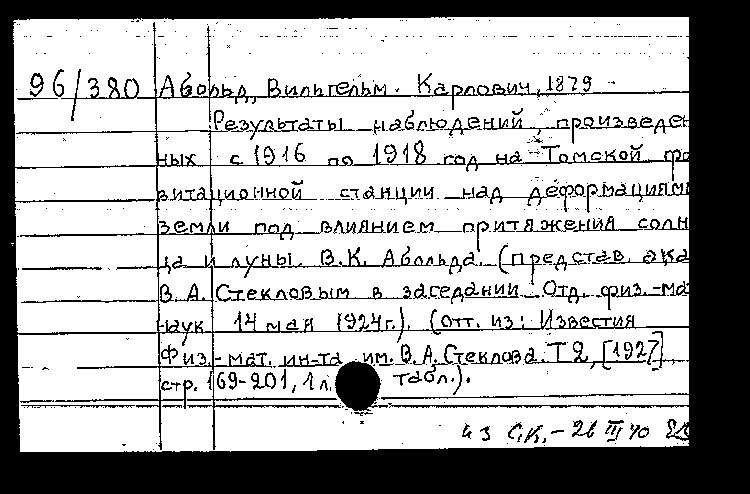 96/380 Абольд, Вильгельм. Карлович, 1879 -
Результаты наблюдений, произведен
ных с 1916 по 1918 год на Томской гра
витационной станции над деформациями
земли под влиянием притяжения солн
ца и луны. В.К. Абольда. (представ. ака
В.А. Стекловым в заседании Отд. физ.-мат
наук 14 мая 1924г.). (отт. из: Известия
Физ.-мат. ин-та им. В.А. Стеклова. Т 2, [1927],
стр. 169-201, 1 л. табл.).
С.К. - 26 III 40